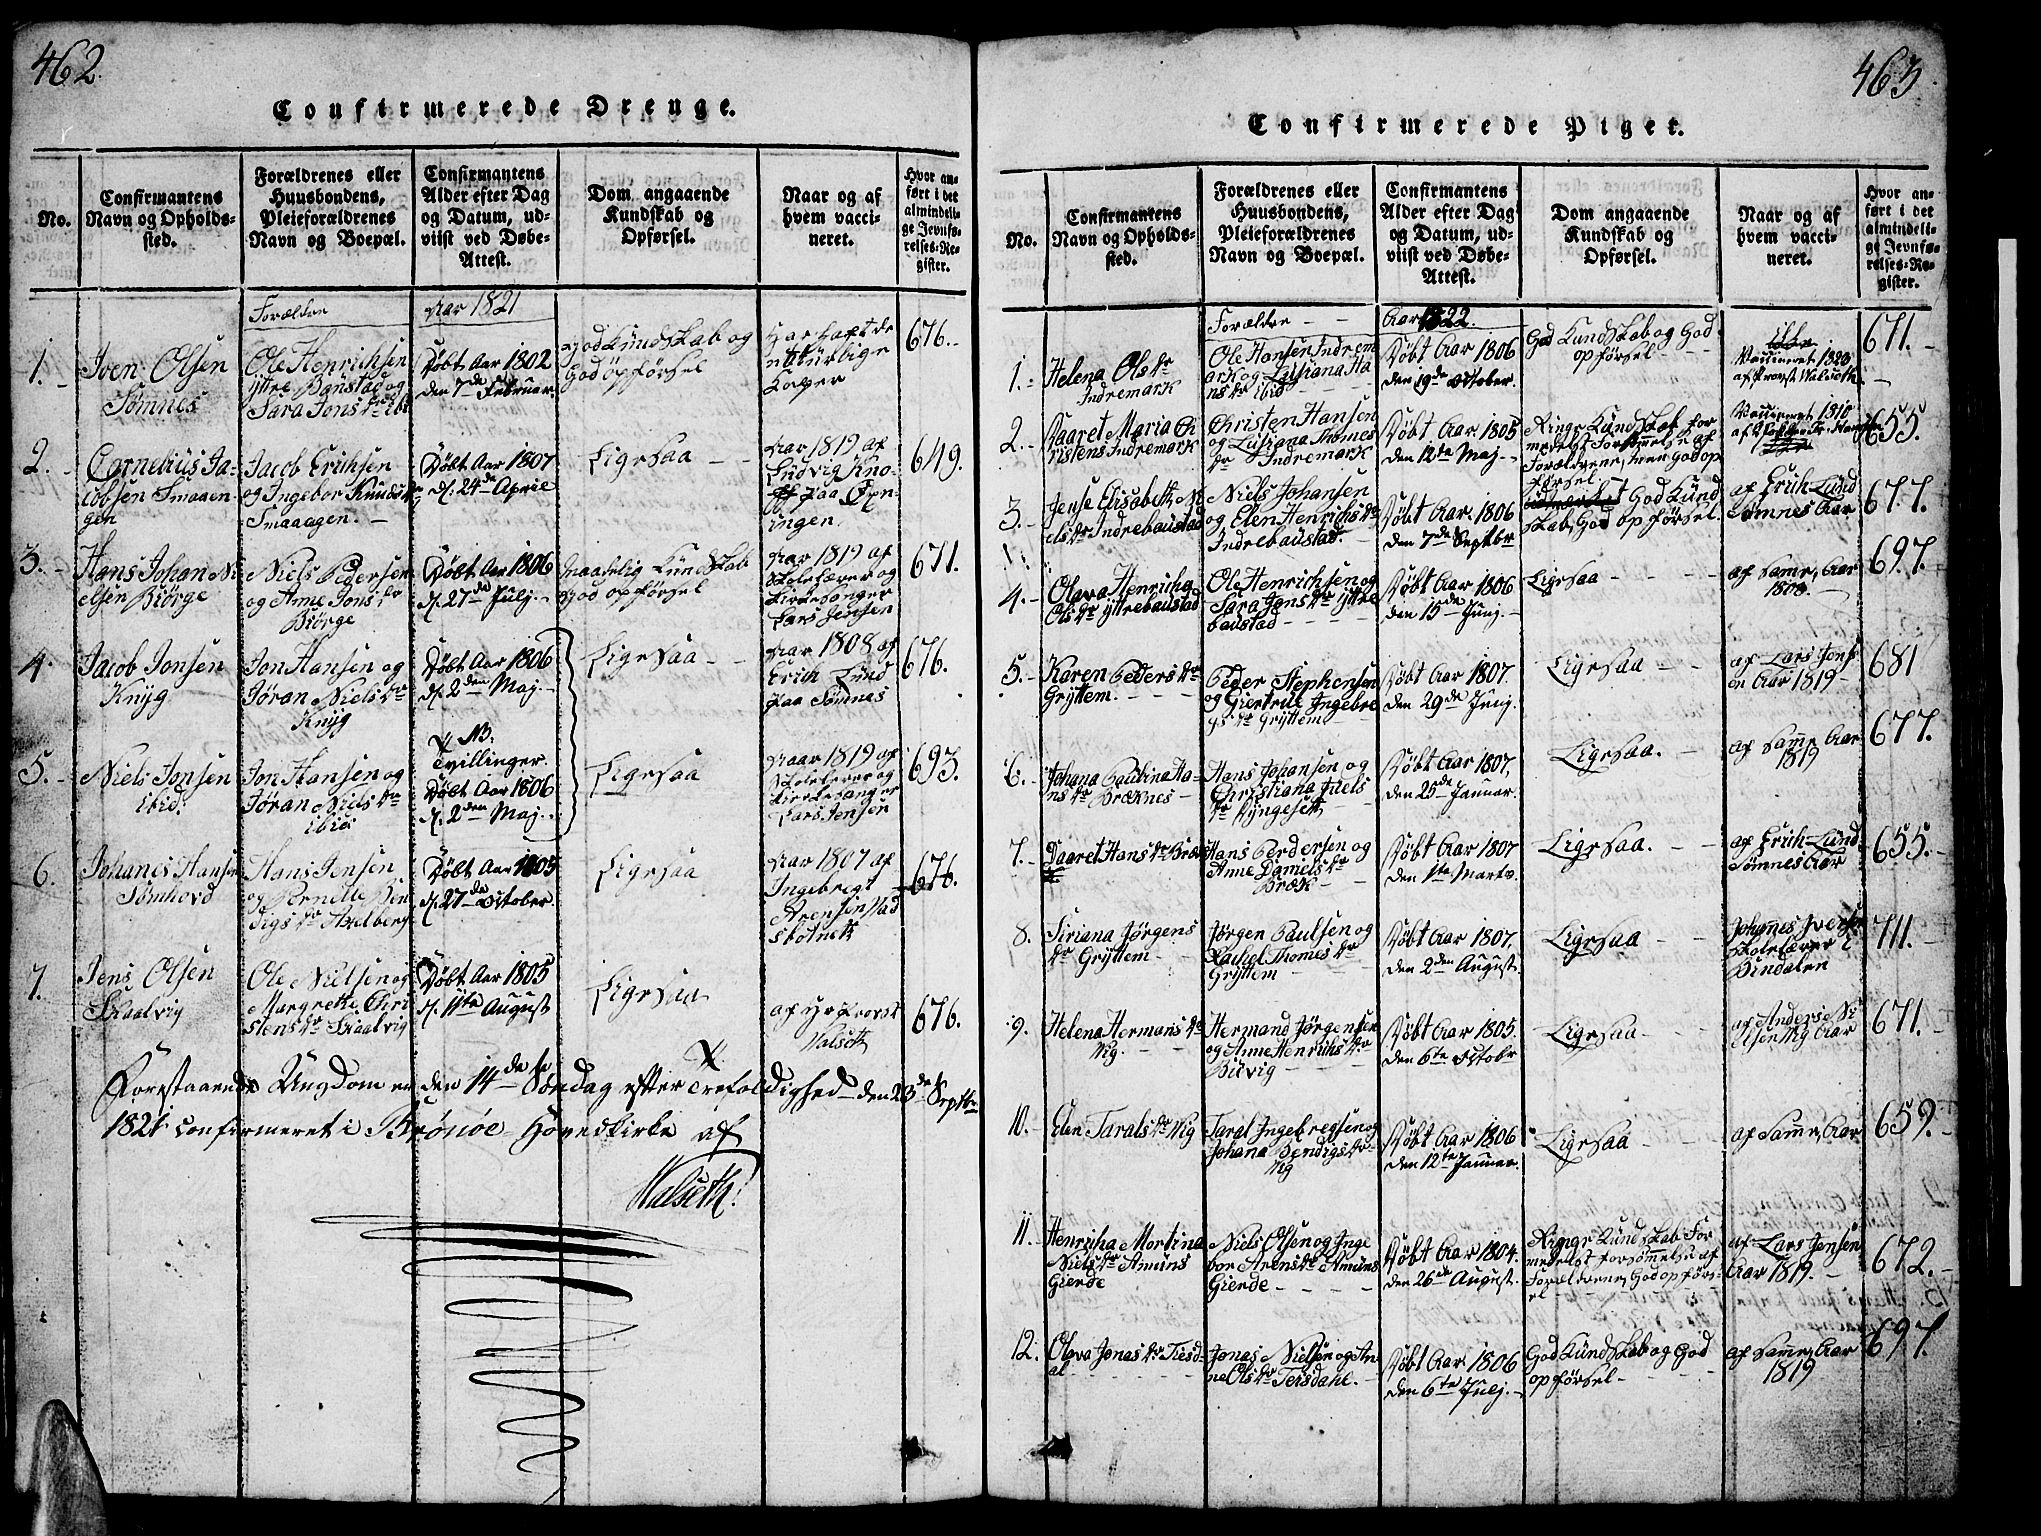 462.
Confirmerede Drenge.
No.
Confirmantens
Navn og Opholds-
sted.
Forældrenes eller
Huusbondens,
Pleieforældrenes
Navn og Boepæl.
Confirmantens
Alder efter Dag
og Datum, ud-
viist ved Døbe-
Attest.
Dom angaaende
Kundskab og
Opførsel.
Naar og af
hvem vacci-
neret.
Hvor an-
ført i det
almindeli-
ge Jevnfø-
relses-Re-
gister.
Forældre
Aar 1821
1.
Iver Olsen
Sømnes
Ole Henrichsen
yttre Baustad og
Sara Jons dr ibid
Døbt Aar 1802
den 7de Februar.
god Kundskab og
God opførsel
Har haft de
naturlige
Koper
676.
2.
Cornelius Ja-
cobsen Smaaen-
gen
Jacob Erichsen
og Ingebor Knudsdr
Smaaagen.
Døbt Aar 1807
d. 24de April
Ligesaa
Aar 1819 af
Ludvig Kno-
ff paa Øpn-
ingen
649.
3.
Hans Johan Ni
elsen Biørge
Niels Pedersen
og Anne Jonsdr
Biørge
Døbt Aar 1806
d. 27de Julj.
Maadelig Kundskab
god opførsel
Aar 1819 af
Skolelærer og
Kirkesanger
Lars Jensen
671.
4.
Jacob Jonsen
Knyg
Jon Hansen og
Jøran Nielsdr
Knyg
Døbt Aar 1806
d. 2den Maj.
Ligesaa
Aar 1808 af
Erich Lund
paa Sømnes
676.
NB.
Tvillinger.
5.
Niels Jonsen
ibid.
Jon Hansen og
Jøran Nielsdr
ibid
Døbt Aar 1806
d. 2den Maj.
Ligesaa
Aar 1819 af
Skolelærer og
Kirkesanger
Lars Jensen
693.
6.
Johanes Hansen
Sømhovd
Hans Jensen
og Pernelle Ben
digsdr Axelberg
Døbt Aar 1805
d. 27de October
Ligesaa
Aar 1807 af
Ingebrigt
Arensen Vad
sbotnet
676.
7.
Jens Olsen
Skaalvig
Ole Nielsen og
Margrethe Chri
stensdr Skaalvig
Døbt Aar 1805
d. 11te August
Ligesaa
af Hr Provst
Walseth
676.
Forestaaende Ungdom er den 14de Søndag efter Trefoldighed den 23de Septbr
1821 confirmeret i Brønøe Hovedkirke af
Walseth.
463
Confirmerede Piger.
No.
Confirmantens
Navn og Opholds-
sted.
Forældrenes eller
Huusbondens,
Pleieforældrenes
Navn og Boepæl.
Confirmantens
Alder efter Dag
og Datum, ud-
viist ved Døbe-
Attest.
Dom angaaende
Kundskab og
Opførsel.
Naar og af
hvem vacci-
neret.
Hvor an-
ført i det
almindeli-
ge Jevnfø-
relses-Re-
gister.
Forældre
Aar 1822.
1.
Helena Olsdr
Indremark
Ole Hansen Indrem
ark og Lusiana Ha
nsdr ibid
Døbt Aar 1806
den 19de October.
God Kundskab og God
opførsel
Vaccineret 1820
af Provst Walseth.
671.
2.
Maaret Maria Ch
ristens Indremark
Christen Hansen
og Lusiana Thomes
dr Indremark
Døbt Aar 1805
den 12te Maj
Ringe Kundskab for
medelst Forsømmelse af
Forældrene, men God op
førsel
Vaccineret 1810
655.
3.
Jense Elisabeth Ni
elsdr Indrebaustad
Niels Johansen
og Elen Henrichsdr
Indrebaustad.
Døbt Aar 1806
den 7de Septbr
God Kund
skab, God opførsel.
af Erich Lund
Sømnes Aar
677.
4.
Olava Henricha
Olsdr yttrebaustad
Ole Henrichsen og
Sara Jonsdr yttre
baustad
Døbt Aar 1806
den 15de Junj.
Ligesaa
af Same, Aar
1808.
697.
5.
Karen Pedersdr
Gryttem.
Peder Stephensen
og Giertrue Ingebre
gsdr Gryttem
Døbt Aar 1807.
den 29de Junj.
Ligesaa
af Lars Jens
en Aar 1819
681
6.
Johana Paulina Ha
nsdr Bræknes
Hans Johansen og
Christiana Juels
dr Kyngeseth
Døbt Aar 1807,
den 25de Januar.
Ligesaa.
af Same Aar
1819
677.
7.
Maaret Hansdr Bræk
Hans Perdersen og
Anne Danielsdr
Bræk
Døbt Aar 1807
den 1ste Marts.
Ligesaa.
af Erich Lund
Sømnes Aar
655.
8.
Siriana Jørgens
dr Gryttem
Jørgen Paulsen og
Rachel Thomesdr
Gryttem
Døbt Aar 1807,
den 2den August.
Ligesaa
Johannes Iversen
Skolelærer i
Bindalen
711.
9.
Helena Hermansdr
Vig.
Hermand Jørgensen
og Anne Henrichsdr
Bitvig
Døbt Aar 1805.
den 6te Octobr
Ligesaa.
af Anders Ni
elsen Vig Aar
671.
10.
Elen Taralsdr Vig
Taral Ingebregsen og
Johana Bendigsdr
Vig
Døbt Aar 1806
den 12te Januar.
Ligesaa
af Same, Aar
659.
11.
Henricha Mortina
Nielsdr Amuns
Gierde
Niels Olsen og Inge
bor Arensdr Amuns
Gierde
Døbt Aar 1804.
den 26de August.
Ringe Kundskab For
medelst forsømmelse af
Forældrene, God opførs-
el
af Lars Jensen
Aar 1819.
672.
12.
Olava Jonasdr Teisd-
al
Jonas Nielsen og An
ne Olsdr Teisdahl.
Døbt Aar 1806
den 6te Julj.
God Kundskab og God
opførsel
af Same, Aar
1819
697.